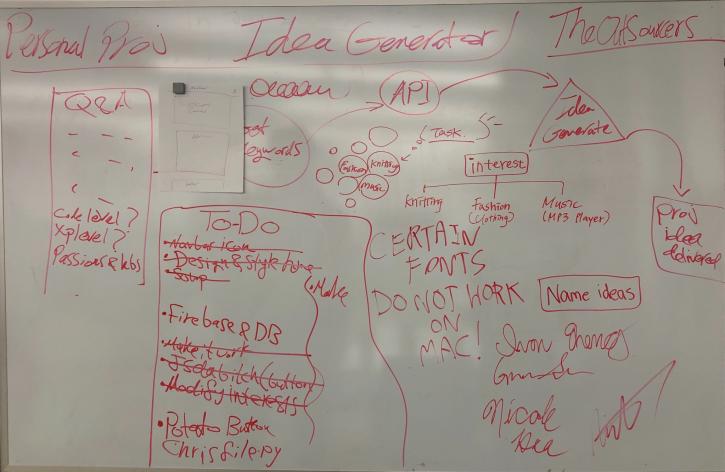 Personal Proj
Idea Generator
TheOutsourcers
Q&A
Code level?
Xp level?
Passions & jobs
keywords
API
Task
Fashion
Knitting
music
interest
Knitting
Fashion
(Clothing)
Music
(MP3 Player)
idea
Generate
Proj
idea
delivered
To-Do
Navbar icon
Design & Style
Setup
Firebase & DB
Make it work
Modify interests
Potato Button
Chrisfile.py
CERTAIN
FONTS
DO NOT WORK
ON
MAC!
Name ideas
Nicole